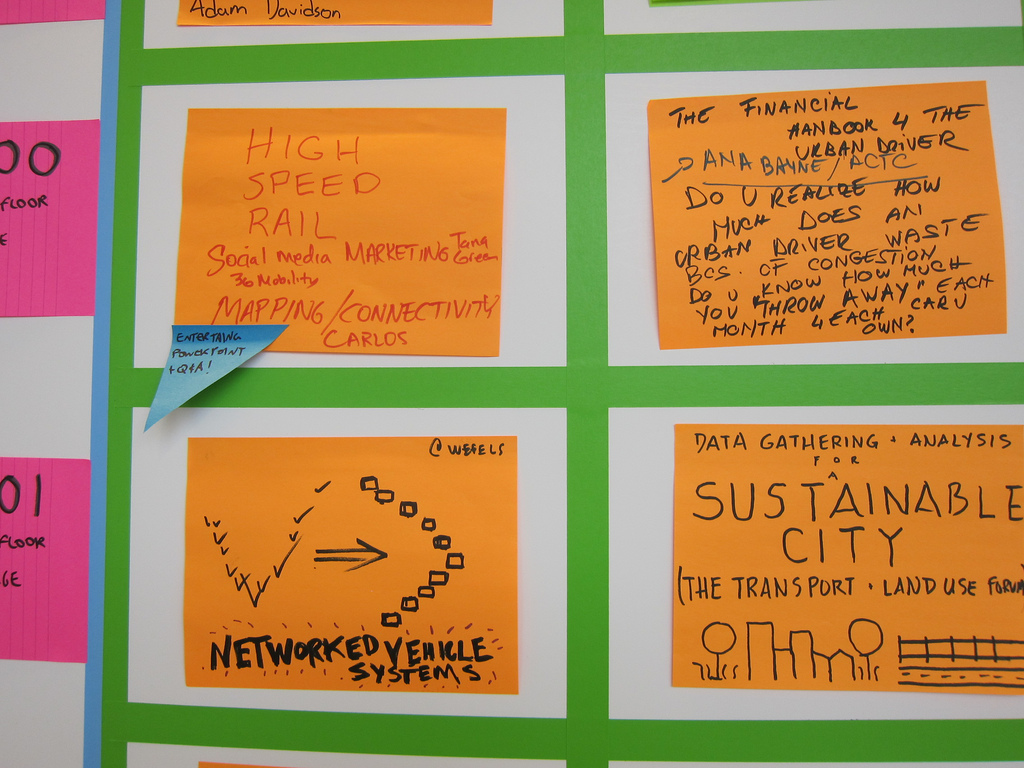 Adam Davidson
00
FLOOR
E
HIGH
SPEED
RAIL
Social media MARKETING Tana
Green
36 Mobility
MAPPING/CONNECTIVITY
CARLOS
ENTERTAING
POWERPOINT
+Q+A!
THE FINANCIAL
HANDBOOK 4 THE
URBAN DRIVER
ANA BAYNE/ACTC
DO U REALIZE HOW
MUCH DOES AN
URBAN DRIVER WASTE
BCS. OF CONGESTION
DO U KNOW HOW MUCH
YOU "THROW AWAY" EACH
MONTH 4 EACH CAR U
OWN?
01
FLOOR
GE
@WEFELS
NETWORKED VEHICLE
SYSTEMS
DATA GATHERING + ANALYSIS
FOR
A
SUSTAINABLE
CITY
(THE TRANSPORT · LAND USE FORUM